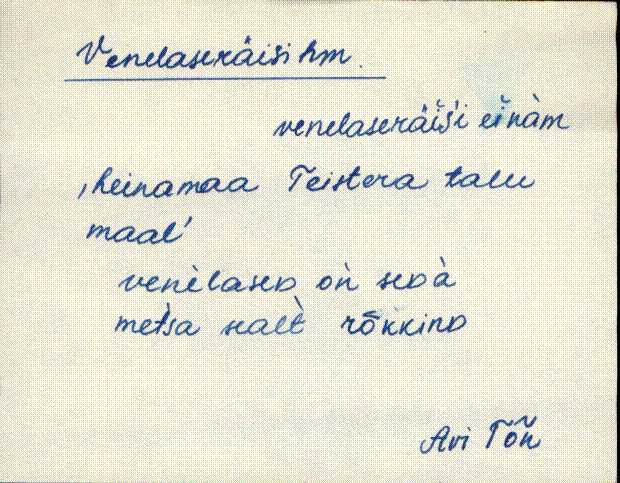 Venelaseräisi hm.
venelaseräiši einàm
‚heinamaa Teistera talu
maal'
venèlaseᴅ oǹ seᴅà
metsa sealt̀ rõᴋᴋinᴅ
Avi Tõn